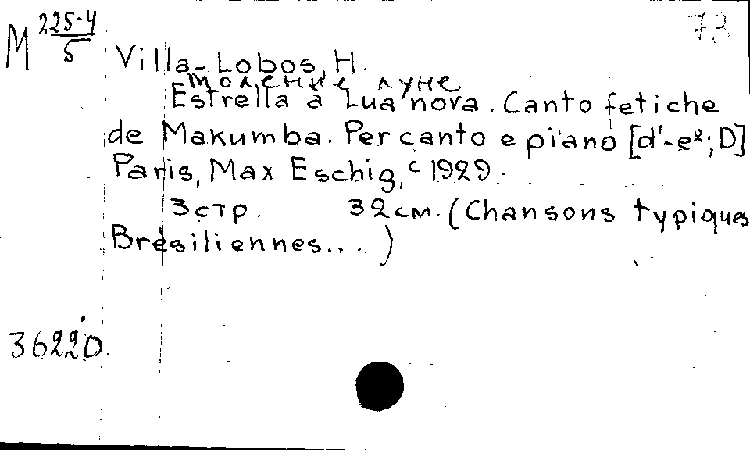 73
М 225-4/5
Villa-Lobos, H.
Моление луне
Estrella a Lua nova. Canto fetiche
de Makumba. Per canto e piano [d'-e²; D]
Paris, Max Eschig, c 1929.
3 стр. 32 см. (Chansons typiques
Brésiliennes...)
36220.